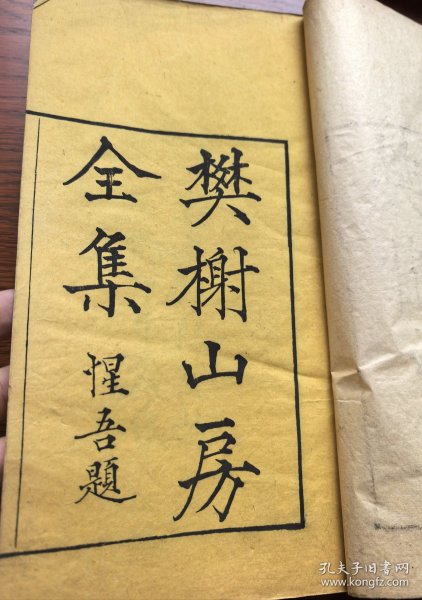 樊榭山房
全集
惺吾題
孔夫子旧书网
www.kongfz.com